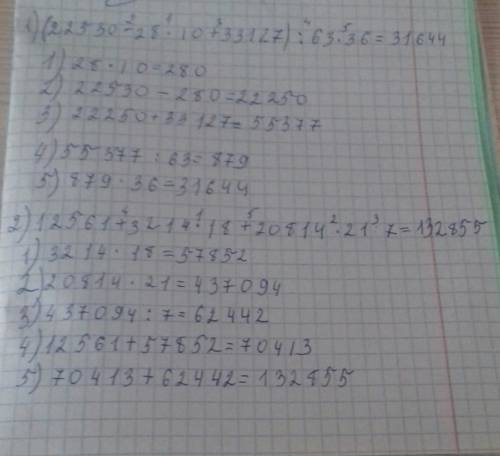 1) (22530-28·10+33127):63·36=31644
1) 28·10=280
2) 22530-280=22250
3) 22250+33127=55377
4) 55377:63=879
5) 879·36=31644
2) 12561+3214·18+20814·21:7=132855
1) 3214·18=57852
2) 20814·21=437094
3) 437094:7=62442
4) 12561+57852=70413
5) 70413+62442=132855